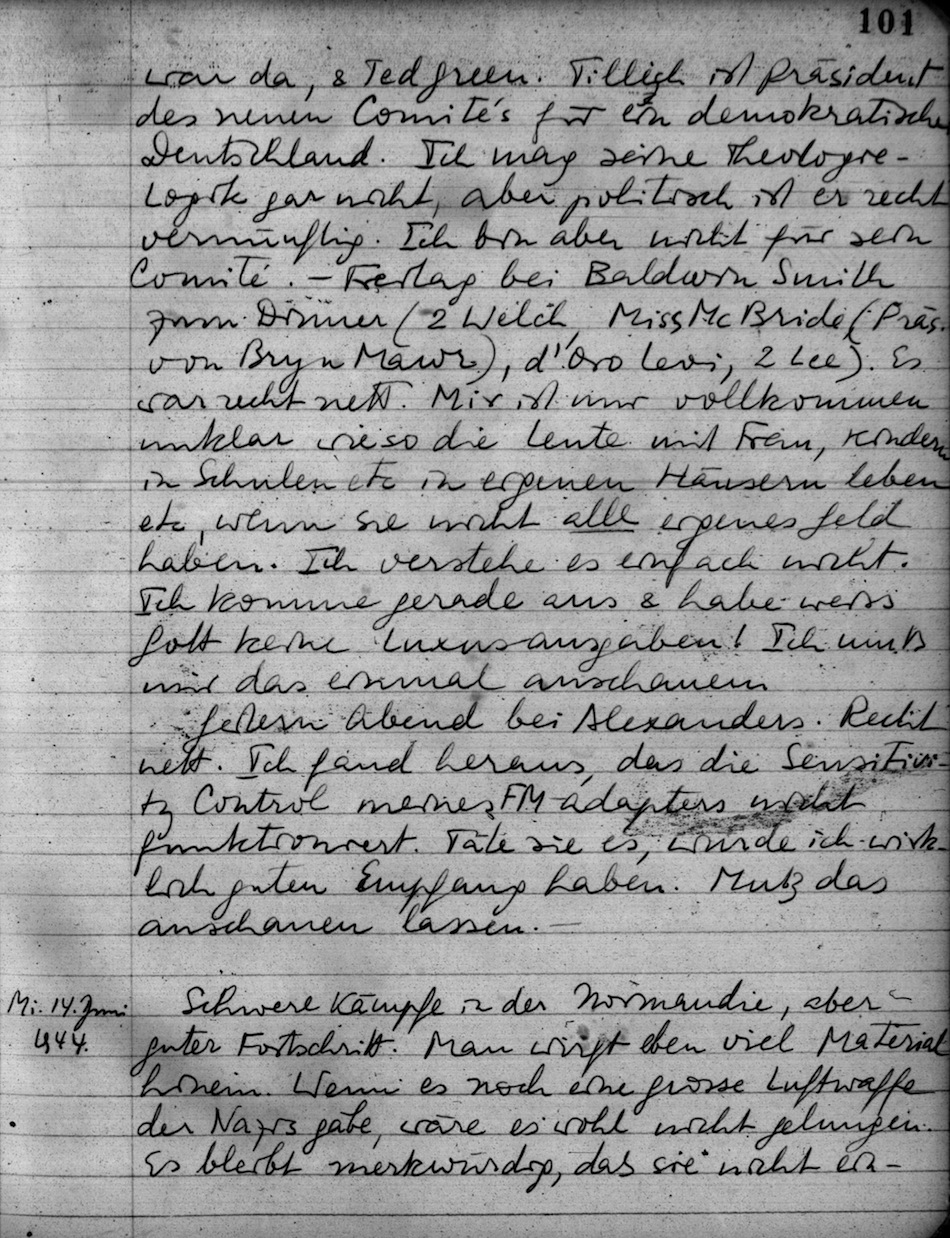 101
war da, & Ted Green. Tilligh ist Präsident
des neuen Comité's für ein demokratisches
Deutschland. Ich mag seine Theologie-
Logik gar nicht, aber politisch ist er recht
vernünftig. Ich bin aber nicht für sein
Comité. – Freitag bei Baldwin Smith
zum Dinner (2 Welch, Miss McBride (Präs.
von Bryn Mawr), d'Oro Levi, 2 Lee). Es
war recht nett. Mir ist nur vollkommen
unklar wieso die Leute mit Frau, Kindern
in Schulen etc in eigenen Häusern leben
etc, wenn sie nicht alle eigenes Geld
haben. Ich verstehe es einfach nicht.
Ich komme gerade aus & habe weiss
Gott keine Luxusausgaben! Ich muß
mir das einmal anschauen
Gestern Abend bei Alexanders. Recht
nett. Ich fand heraus, das die Sensitivi-
ty Control meines FM-adapters nicht
funktioniert. Täte sie es, würde ich wirk-
lich guten Empfang haben. Muß das
anschauen lassen. —
Mi. 14. Juni
1944.
Schwere Kämpfe in der Normandie, aber
guter Fortschritt. Man wirft eben viel Material
hinein. Wenn es noch eine grosse Luftwaffe
der Nazis gäbe, wäre es wohl nicht gelungen.
Es bleibt merkwürdig, daß sie nicht ein-